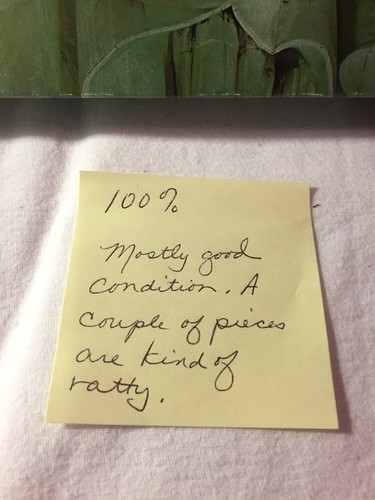 100%
Mostly good
condition. A
couple of pieces
are kind of
ratty.